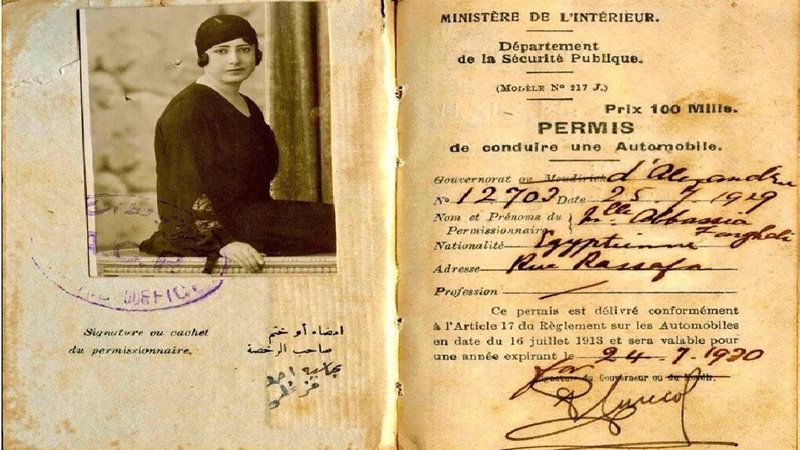 Signature ou cachet
du permissionnaire.
امضاء أو ختم
صاحب الرخصة
MINISTÈRE DE L'INTÉRIEUR.
Département
de la Sécurité Publique.
(MODÈLE No 217 J.)
Prix 100 Mills.
PERMIS
de conduire une Automobile.
Gouvernorat ou Moudirieh d'Alexandrie
No 12703 Date 25 7 1929
Nom et Prénoms du
Permissionnaire
Mlle Abbassia
Farghali
Nationalité Egyptienne
Adresse Rue Rassafa
Profession
Ce permis est délivré conformément
à l'Article 17 du Règlement sur les Automobiles
en date du 16 juillet 1913 et sera valable pour
une année expirant le 24 - 7 - 1930
for
Signature du Gouverneur ou du Moudir.